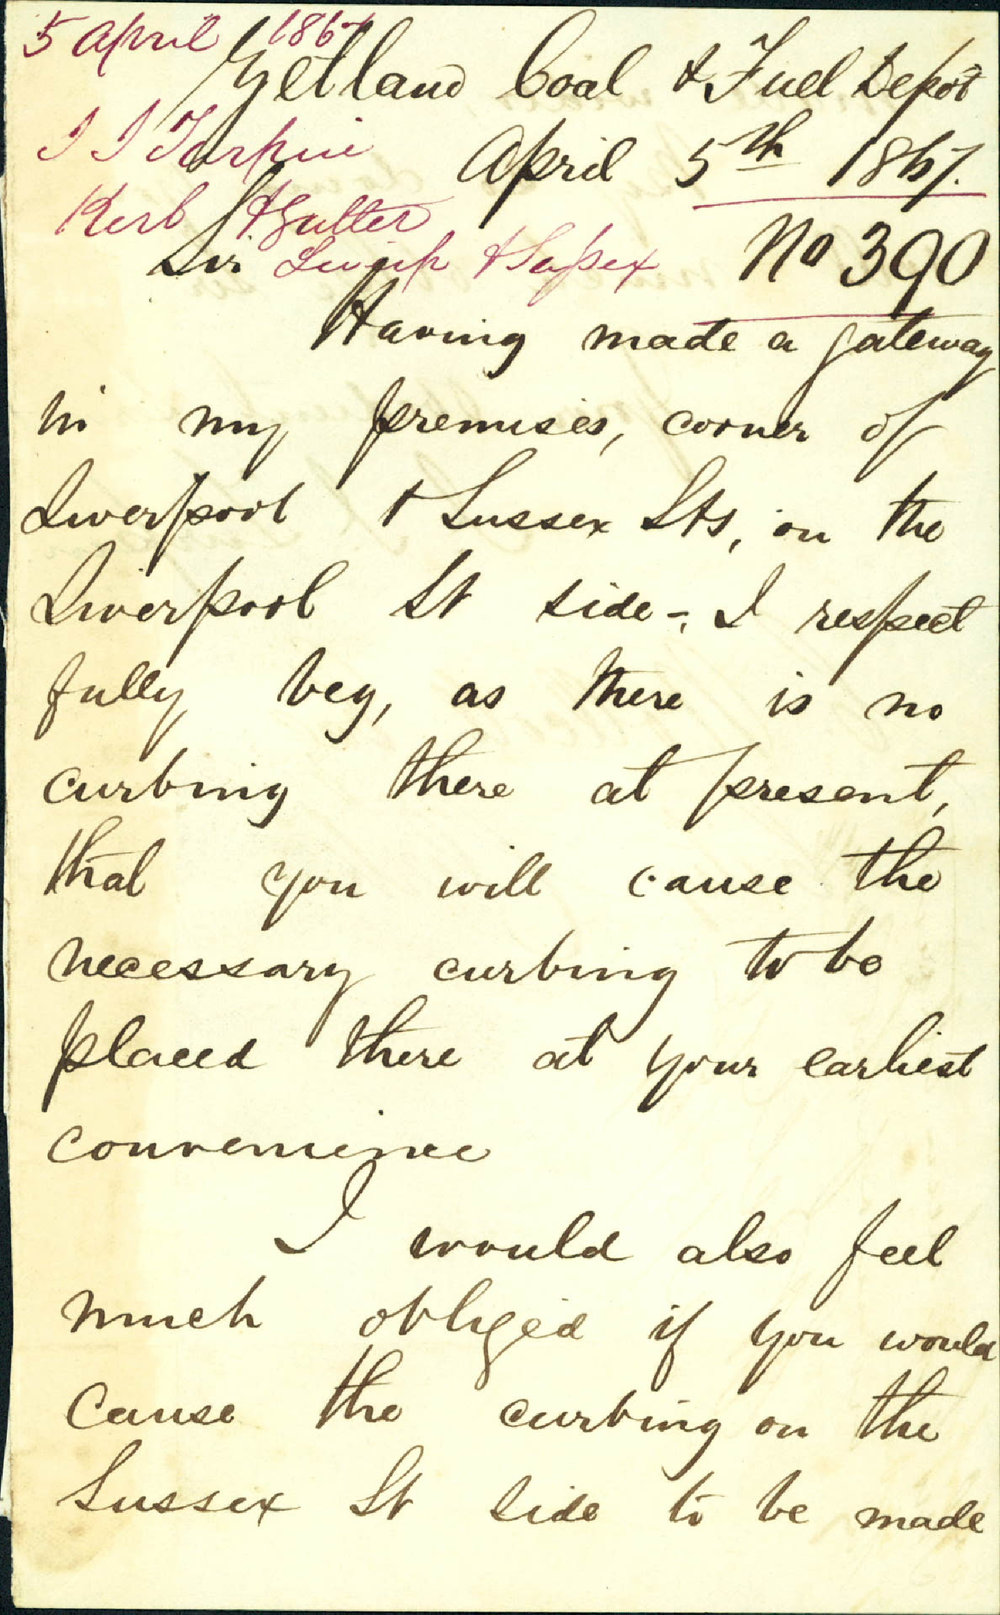 5 April 1867
Zetland Coal & Fuel Depôt
J J Turpin
April 5th 1867.
Kerb & Gutter
Sir
Liverp & Sussex
No 390
Having made a gateway
in my premises, corner of
Liverpool & Sussex Sts, on the
Liverpool St side -, I respect
fully beg, as there is no
curbing there at present,
that you will cause the
necessary curbing to be
placed there at your earliest
convenience
I would also feel
much obliged if you would
cause the curbing on the
Sussex St side to be made